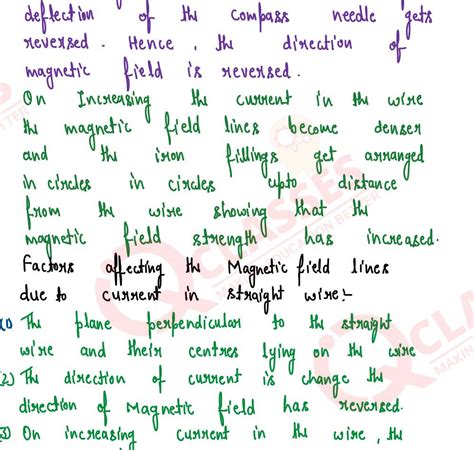 deflection of the compass needle gets
reversed. Hence, the direction of
magnetic field is reversed.
On Increasing the current in the wire
the magnetic field lines become denser
and the iron fillings get arranged
in circles in circles upto distance
from the wire showing that the
magnetic field strength has increased.
Factors affecting the Magnetic field lines
due to current in straight wire:-
(1) The plane perpendicular to the straight
wire and their centres lying on the wire
(2) The direction of current is change the
direction of Magnetic field has reversed.
(3) On increasing current in the wire, the